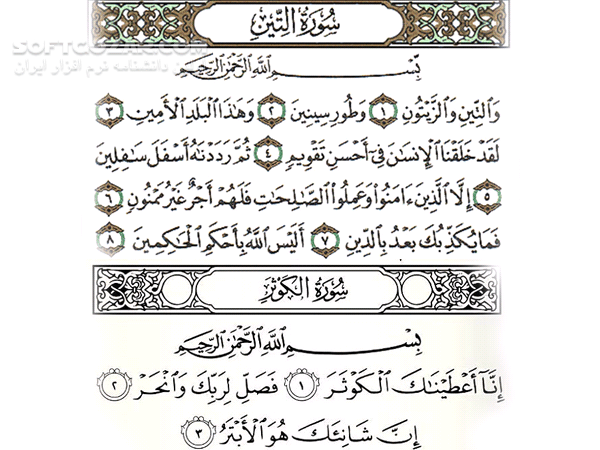 SOFTGOZAR.COM
دانشنامه نرم افزار ایران
سُورَةُ التِّينِ
بِسْمِ اللَّهِ الرَّحْمَٰنِ الرَّحِيمِ
وَالتِّينِ وَالزَّيْتُونِ ١ وَطُورِ سِينِينَ ٢ وَهَٰذَا الْبَلَدِ الْأَمِينِ ٣
لَقَدْ خَلَقْنَا الْإِنسَانَ فِي أَحْسَنِ تَقْوِيمٍ ٤ ثُمَّ رَدَدْنَاهُ أَسْفَلَ سَافِلِينَ
٥ إِلَّا الَّذِينَ ءَامَنُوا وَعَمِلُوا الصَّالِحَاتِ فَلَهُمْ أَجْرٌ غَيْرُ مَمْنُونٍ ٦
فَمَا يُكَذِّبُكَ بَعْدُ بِالدِّينِ ٧ أَلَيْسَ اللَّهُ بِأَحْكَمِ الْحَاكِمِينَ ٨
سُورَةُ الكَوْثَرِ
بِسْمِ اللَّهِ الرَّحْمَٰنِ الرَّحِيمِ
إِنَّا أَعْطَيْنَاكَ الْكَوْثَرَ ١ فَصَلِّ لِرَبِّكَ وَانْحَرْ ٢
إِنَّ شَانِئَكَ هُوَ الْأَبْتَرُ ٣